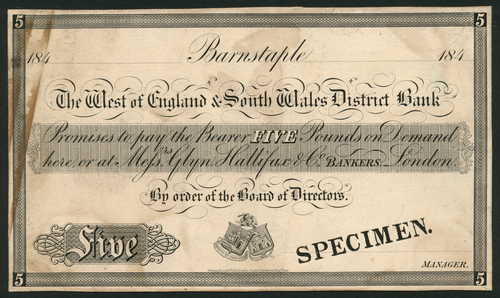 5 5
184 Barnstaple 184
The West of England & South Wales District Bank
Promises to pay the Bearer FIVE Pounds on Demand
here, or at Mefs.rs Glyn, Hallifax & Co. BANKERS,_London.
By order of the Board of Directors.
Five
SPECIMEN.
MANAGER.
5 5